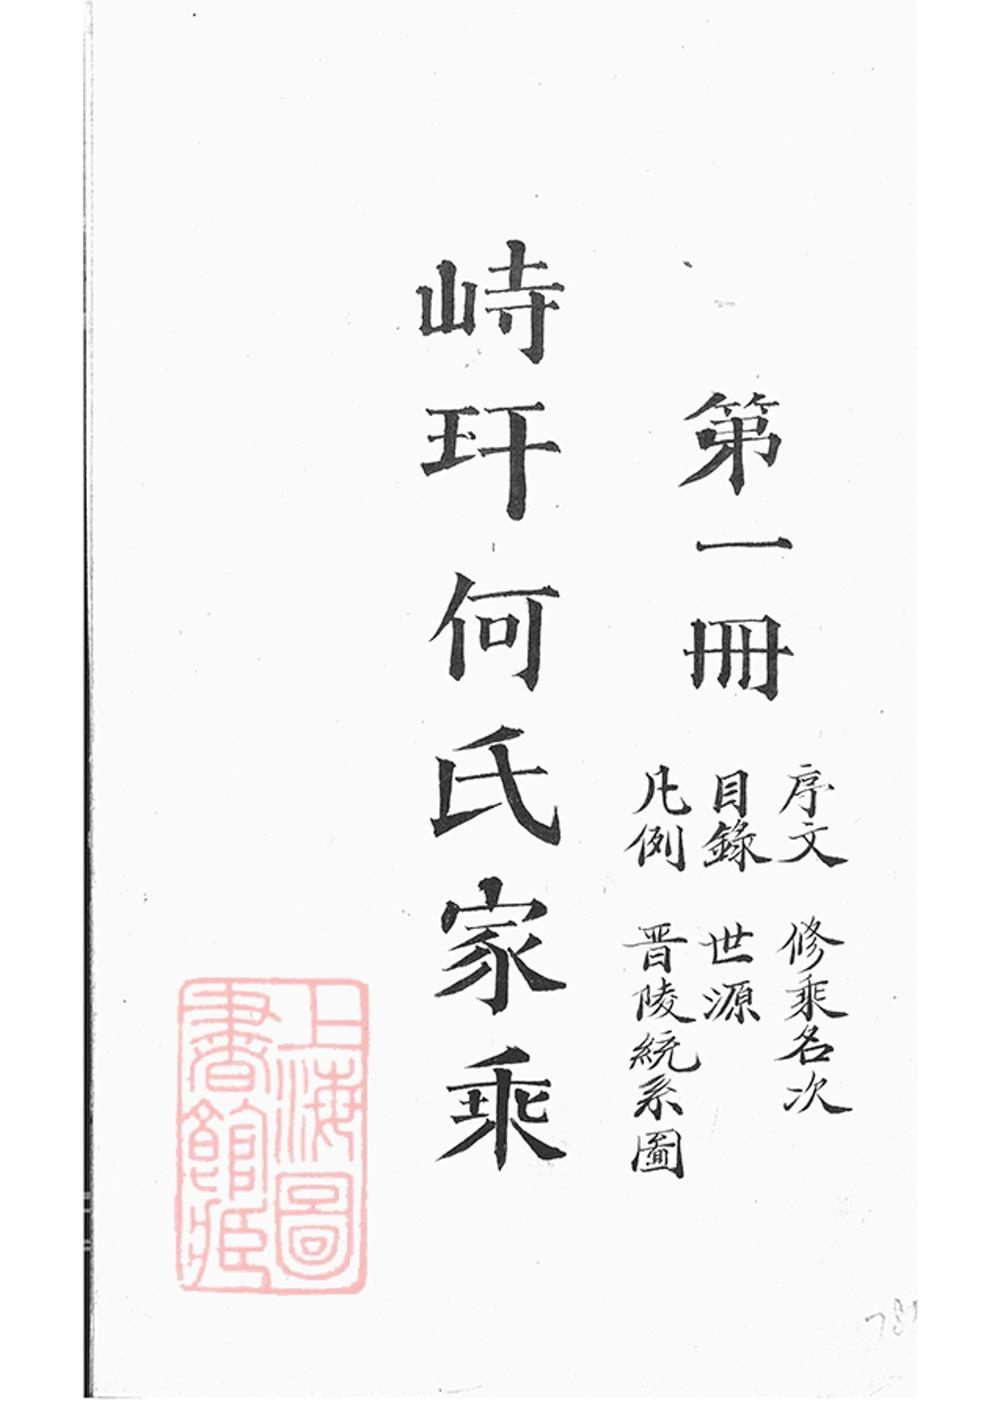 第一冊
序文 修乘名次
目錄 世源
凡例 晋陵統系圖
峙玕何氏家乘
上海圖
書館藏